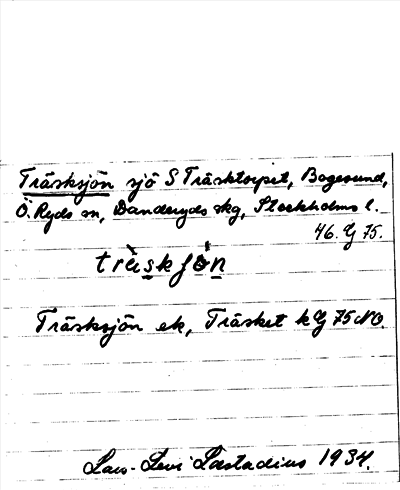 Träsksjön sjö S Träsktorpet, Bogesund,
Ö. Ryds sn, Danderyds skg, Stockholms l.
46. Y 75.
trä̀skʃö́n
Träsksjön ek, Träsket k Y 75 NO.
Lars-Levi Læstadius 1934.